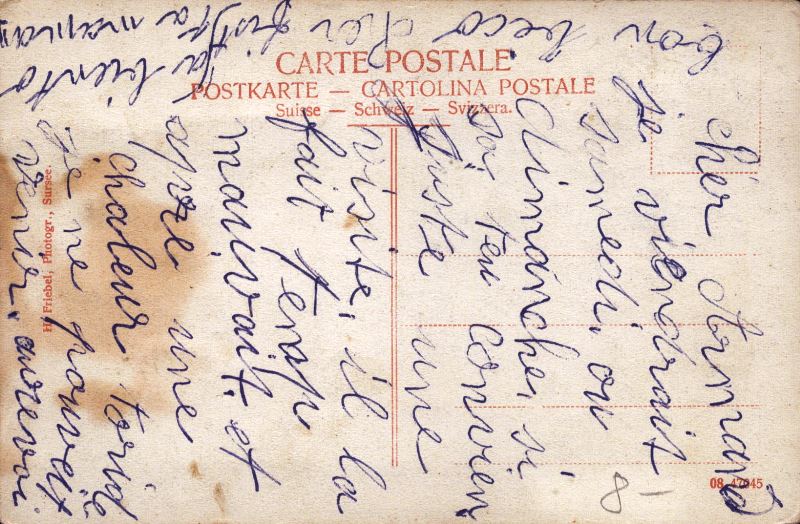 CARTE POSTALE
POSTKARTE — CARTOLINA POSTALE
Suisse — Schweiz — Svizzera.
H. Friebel, Photogr., Sursee.
08 47945
8 -
cher Armand
je viendrait
samedi, ou
dimanche, si
sa teu convien
juste une
visite, il la
fait temp
mauvait et
apre une
chaleur torid
je ne pouveit
venir. aurevoi
bon beco cher fist
ta mama
a biento